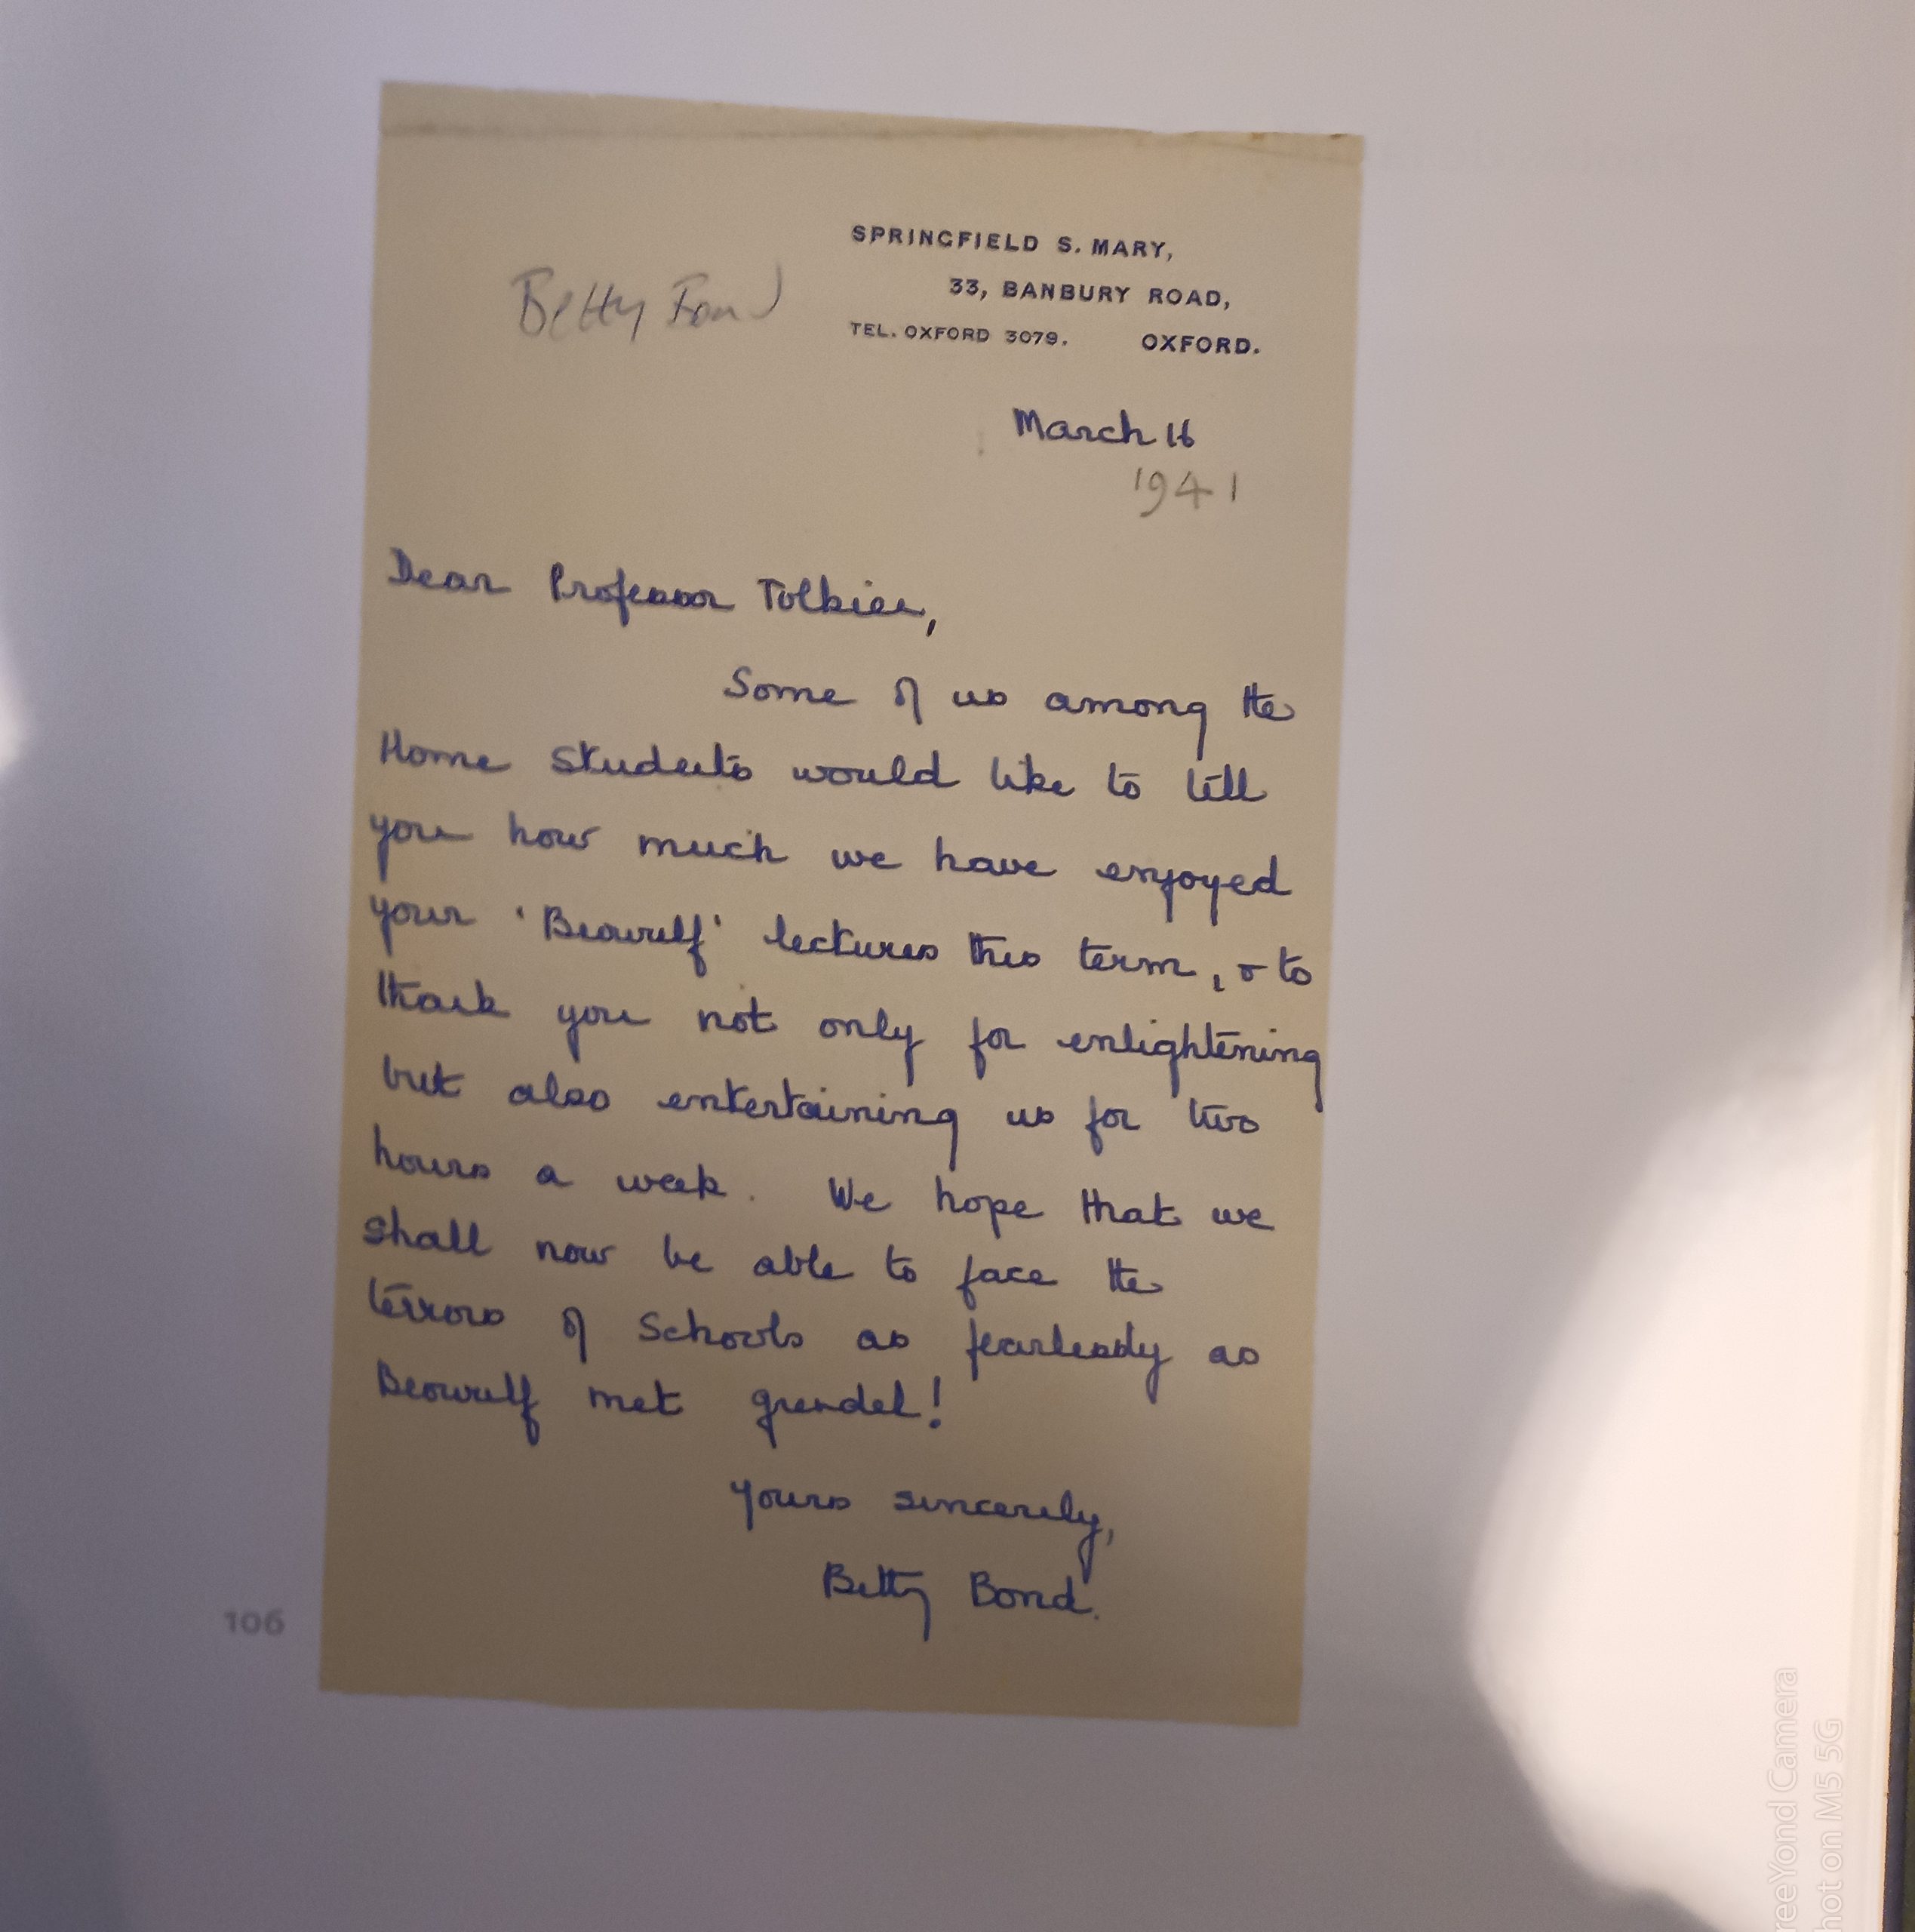 SPRINGFIELD S. MARY,
33, BANBURY ROAD,
TEL. OXFORD 3079. OXFORD.
Betty Bond
March 16
1941
Dear Professor Tolkien,
Some of us among the
Home Students would like to tell
you how much we have enjoyed
your 'Beowulf' lectures this term, & to
thank you not only for enlightening
but also entertaining us for two
hours a week. We hope that we
shall now be able to face the
terrors of Schools as fearlessly as
Beowulf met grendel!
Yours sincerely,
Betty Bond.
106
reeYond Camera
hot on M5 5G